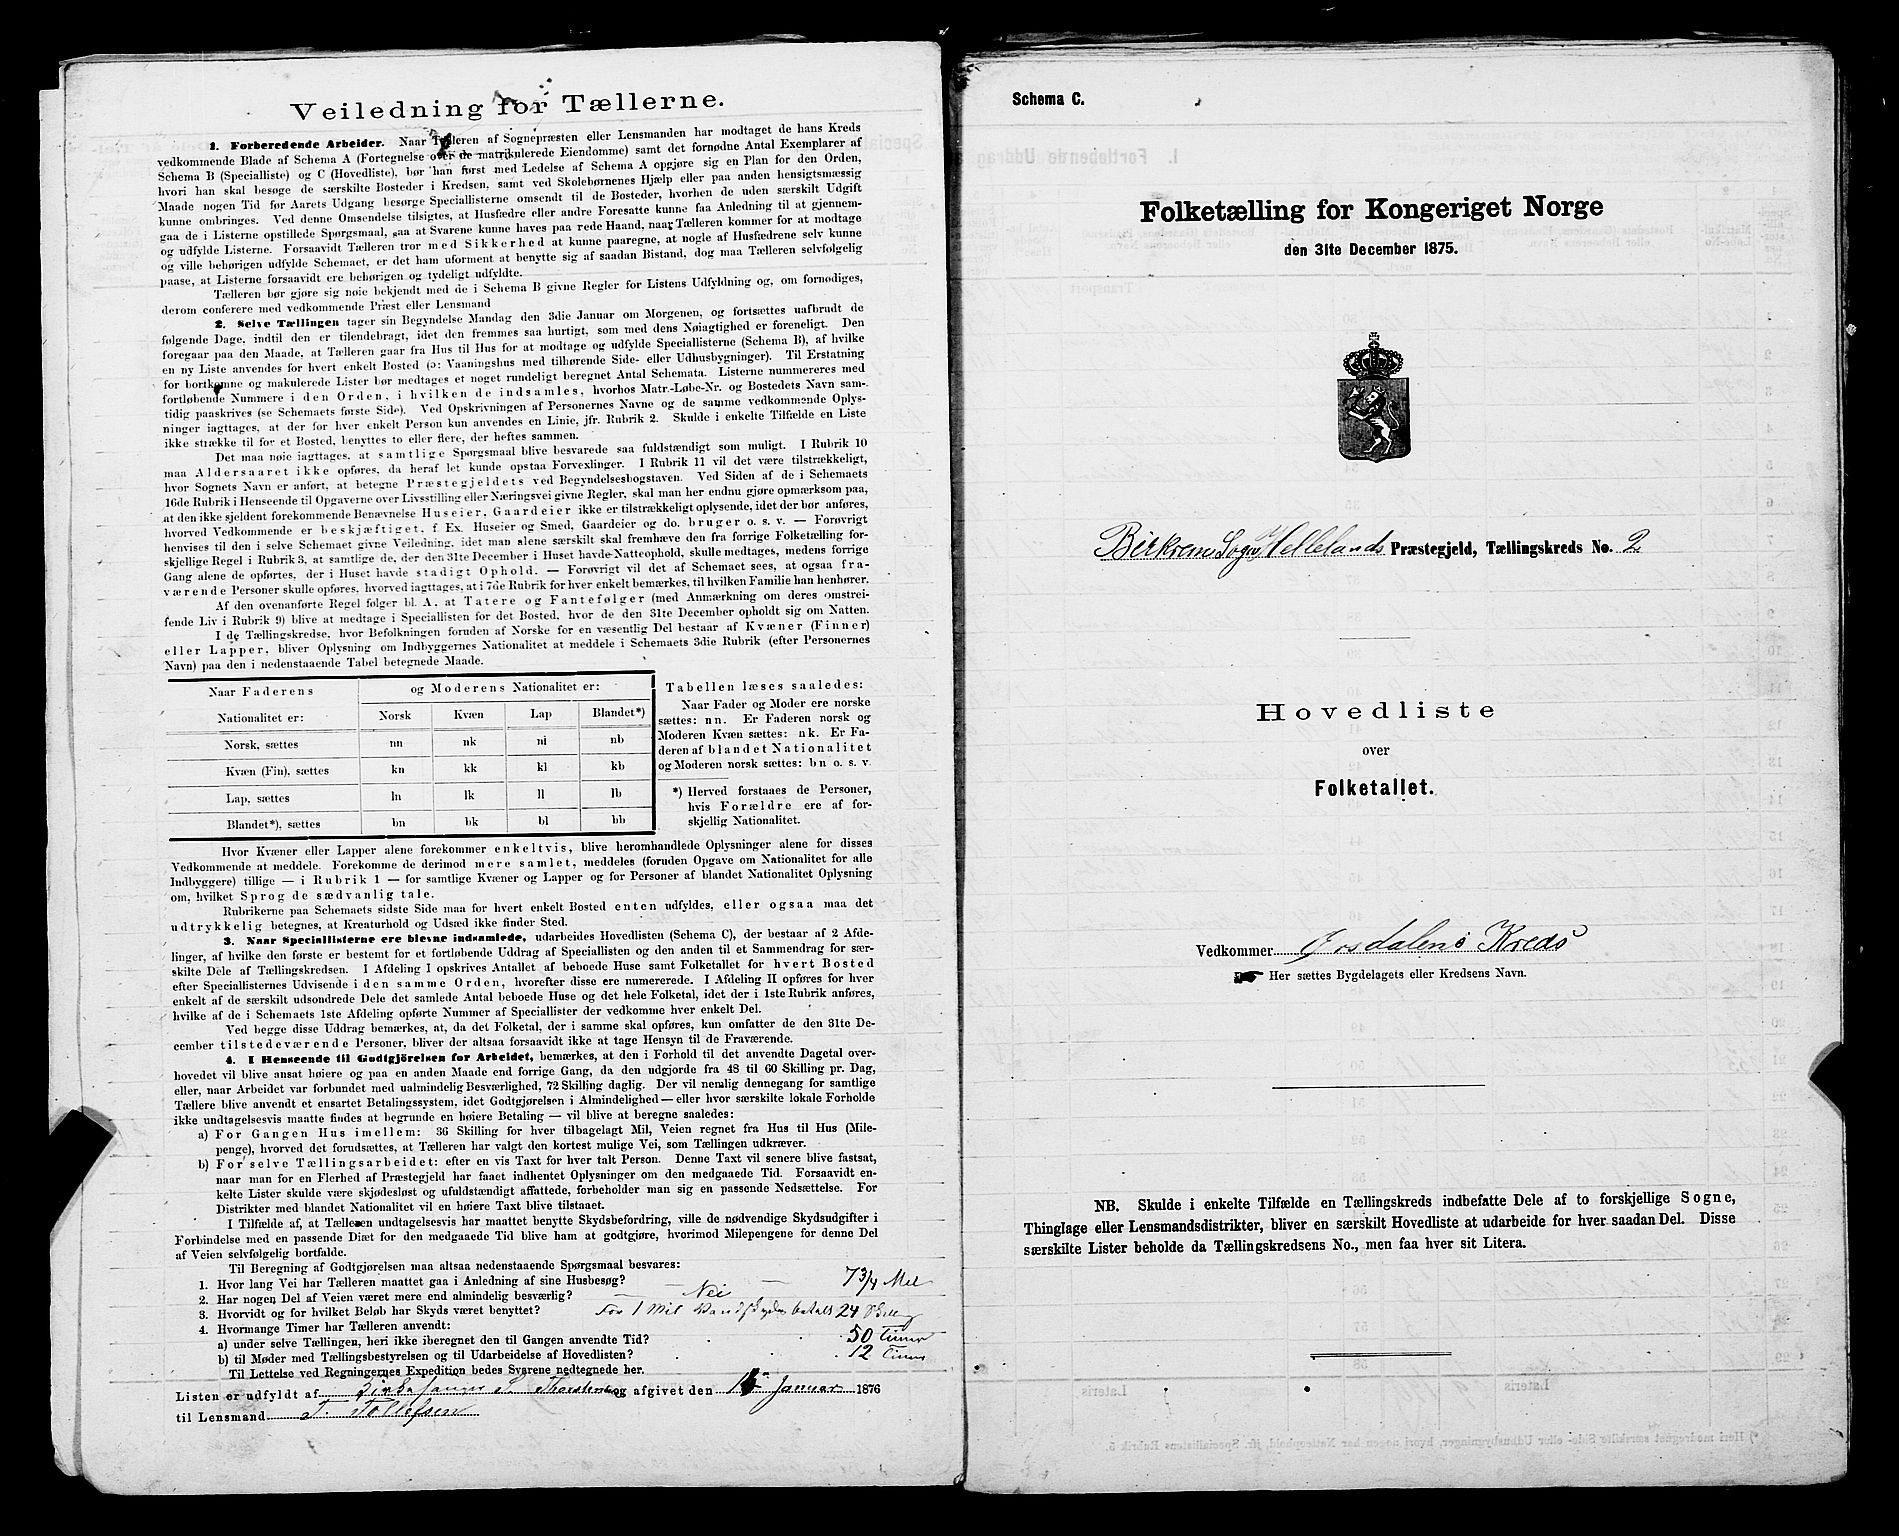 Veiledning for Tællerne.
1. Forberedende Arbeider. Naar Tælleren af Sognepræsten eller Lensmanden har modtaget de hans Kreds
vedkommende Blade af Schema A (Fortegnelse over de matrikulerede Eiendomme) samt det fornødne Antal Exemplarer af
Schema B (Specialliste) og C (Hovedliste), bør han først med Ledelse af Schema A opgjøre sig en Plan for den Orden,
hvori han skal besøge de særskilte Bosteder i Kredsen, samt ved Skolebørnenes Hjælp eller paa anden hensigtsmæssig
Maade nogen Tid før Aarets Udgang besørge Speciallisterne omsendt til de Bosteder, hvorhen de uden særskilt Udgift
kunne ombringes. Ved denne Omsendelse tilsigtes, at Husfædre eller andre Foresatte kunne faa Anledning til at gjennem-
gaa de i Listerne opstillede Spørgsmaal, saa at Svarene kunne haves paa rede Haand, naar Tælleren kommer for at modtage
og udfylde Listerne. Forsaavidt Tælleren tror med Sikkerhed at kunne paaregne, at nogle af Husfædrene selv kunne
og ville behørigen udfylde Schemaet, er det ham uforment at benytte sig af saadan Bistand, dog maa Tælleren selvfølgelig
paase, at Listerne forsaavidt ere behørigen og tydeligt udfyldte.
Tælleren bør gjøre sig nøie bekjendt med de i Schema B givne Regler for Listens Udfyldning og, om fornødiges,
derom conferere med vedkommende Præst eller Lensmand
2. Selve Tællingen tager sin Begyndelse Mandag den 3die Januar om Morgenen, og fortsættes uafbrudt de
følgende Dage, indtil den er tilendebragt, idet den fremmes saa hurtigt, som med dens Nøiagtighed er foreneligt. Den
foregaar paa den Maade, at Tælleren gaar fra Hus til Hus for at modtage og udfylde Speciallisterne (Schema B), af hvilke
en ny Liste anvendes for hvert enkelt Bosted (ɔ: Vaaningshus med tilhørende Side- eller Udhusbygninger). Til Erstatning
for bortkomne og makulerede Lister bør medtages et noget rundeligt beregnet Antal Schemata. Listerne nummereres med
fortløbende Nummere i den Orden, i hvilken de indsamles, hvorhos Matr.-Løbe-Nr. og Bostedets Navn sam-
tidig paaskrives (se Schemaets første Side). Ved Opskrivningen af Personernes Navne og de samme vedkommende Oplys-
ninger iagttages, at der for hver enkelt Person kun anvendes en Linie, jfr. Rubrik 2. Skulde i enkelte Tilfælde en Liste
ikke strække til for et Bosted, benyttes to eller flere, der heftes sammen.
Det maa nøie iagttages, at samtlige Spørgsmaal blive besvarede saa fuldstændigt som muligt. I Rubrik 10
maa Aldersaaret ikke opføres, da heraf let kunde opstaa Forvexlinger. I Rubrik 11 vil det være tilstrækkeligt,
hvor Sognets Navn er anført, at betegne Præstegjeldets ved Begyndelsesbogstaven. Ved Siden af de i Schemaets
16de Rubrik i Henseende til Opgaverne over Livsstilling eller Næringsvei givne Regler, skal man her endnu gjøre opmærksom paa,
at den ikke sjeldent forekommende Benævnelse Huseier, Gaardeier ikke er tilstrækkeligt oplysende, idet der bør anføres,
hvorved Vedkommende er beskjæftiget, f. Ex. Huseier og Smed, Gaardeier og do. bruger o. s. v. — Forøvrigt
henvises til den i selve Schemaet givne Veiledning, idet man alene særskilt skal fremhæve den fra forrige Folketælling for-
skjellige Regel i Rubrik 3, at samtlige de, der den 31te December i Huset havde Natteophold, skulle medtages, medens forrige
Gang alene de opførtes, der i Huset havde stadigt Ophold. — Forøvrigt vil det af Schemaet sees, at ogsaa fra-
værende Personer skulle opføres, hvorved iagttages, at i 7de Rubrik for hver enkelt bemærkes, til hvilken Familie han henhører.
Af den ovenanførte Regel følger bl. A. at Tatere og Fantefølger (med Anmærkning om deres omstrei-
fende Liv i Rubrik 9) blive at medtage i Speciallisten for det Bosted, hvor de den 31te December opholdt sig om Natten.
I de Tællingskredse, hvor Befolkningen foruden af Norske for en væsentlig Del bestaar af Kvæner (Finner)
eller Lapper, bliver Oplysning om Indbyggernes Nationalitet at meddele i Schemaets 3die Rubrik (efter Personernes
Navn) paa den i nedenstaaende Tabel betegnede Maade.
Naar Faderens og Moderens Nationalitet er:
Nationalitet er: Norsk Kvæn Lap Blandet*)
Norsk, sættes nn nk nl nb
Kvæn (Fin), sættes kn kk kl kb
Lap, sættes ln lk ll lb
Blandet*), sættes bn bk bl bb
Tabellen læses saaledes:
Naar Fader og Moder ere norske
sættes: nn. Er Faderen norsk og
Moderen Kvæn sættes: nk. Er Fa-
deren af blandet Nationalitet
og Moderen norsk sættes: bn o. s. v
*) Herved forstaaes de Personer,
hvis Forældre ere af for-
skjellig Nationalitet.
Hvor Kvæner eller Lapper alene forekommer enkeltvis, blive heromhandlede Oplysninger alene for disses
Vedkommende at meddele. Forekomme de derimod mere samlet, meddeles (foruden Opgave om Nationalitet for alle
Indbyggere) tillige — i Rubrik 1 — for samtlige Kvæner og Lapper og for Personer af blandet Nationalitet Oplysning
om, hvilket Sprog de sædvanlig tale.
Rubrikerne paa Schemaets sidste Side maa for hvert enkelt Bosted enten udfyldes, eller ogsaa maa det
udtrykkelig betegnes, at Kreaturhold og Udsæd ikke finder Sted.
3. Naar Speciallisterne ere blevne indsamlede, udarbeides Hovedlisten (Schema C), der bestaar af 2 Afde-
linger, af hvilke den første er bestemt for et fortløbende Uddrag af Speciallisten og den anden til et Sammendrag for sær-
skilte Dele af Tællingskredsen. I Afdeling I opskrives Antallet af beboede Huse samt Folketallet for hvert Bosted
efter Speciallisternes Udvisende i den samme Orden, hvorefter disse ere numererede. I Afdeling II opføres for hver
enkelt af de særskilt udsondrede Dele det samlede Antal beboede Huse og det hele Folketal, idet der i 1ste Rubrik anføres,
hvilke af de i Schemaets 1ste Afdeling opførte Nummer af Speciallister der vedkomme hver enkelt Del.
Ved begge disse Uddrag bemærkes, at, da det Folketal, der i samme skal opføres, kun omfatter de den 31te De-
cember tilstedeværende Personer, bliver der altsaa forsaavidt ikke at tage Hensyn til de Fraværende.
4. I Henseende til Godtgjörelsen for Arbeidet, bemærkes, at den i Forhold til det anvendte Dagetal over-
hovedet vil blive ansat høiere og paa en anden Maade end forrige Gang, da den udgjorde fra 48 til 60 Skilling pr. Dag,
eller, naar Arbeidet var forbundet med ualmindelig Besværlighed, 72 Skilling daglig. Der vil nemlig dennegang for samtlige
Tællere blive anvendt et ensartet Betalingssystem, idet Godtgjørelsen i Almindelighed — eller hvor særskilte lokale Forholde
ikke undtagelsesvis maatte findes at begrunde en høiere Betaling — vil blive at beregne saaledes:
a) For Gangen Hus imellem: 36 Skilling for hver tilbagelagt Mil, Veien regnet fra Hus til Hus (Mile-
penge), hvorved det forudsættes, at Tælleren har valgt den kortest mulige Vei, som Tællingen udkræver.
b) For selve Tællingsarbeidet: efter en vis Taxt for hver talt Person. Denne Taxt vil senere blive fastsat,
naar man for en Flerhed af Præstegjeld har faaet indhentet Oplysninger om den medgaaede Tid. Forsaavidt en-
kelte Lister skulde være skjødesløst og ufuldstændigt affattede, forbeholder man sig en passende Nedsættelse. For
Distrikter med blandet Nationalitet vil en høiere Taxt blive tilstaaet.
I Tilfælde af, at Tælleren undtagelsesvis har maattet benytte Skydsbefordring, ville de nødvendige Skydsudgifter i
Forbindelse med en passende Diæt for den medgaaede Tid blive ham at godtgjøre, hvorimod Milepengene for denne Del
af Veien selvfølgelig bortfalde.
Til Beregning af Godtgjørelsen maa altsaa nedenstaaende Spørgsmaal besvares:
1. Hvor lang Vei har Tælleren maattet gaa i Anledning af sine Husbesøg? 7 3/4 Mil
2. Har nogen Del af Veien været mere end almindelig besværlig? — Nei —
3. Hvorvidt og for hvilket Beløb har Skyds været benyttet? For 1 Mil Vandskyds betalt 24 Skill
4. Hvormange Timer har Tælleren anvendt:
a) under selve Tællingen, heri ikke iberegnet den til Gangen anvendte Tid? 50 Timer
b) til Møder med Tællingsbestyrelsen og til Udarbeidelse af Hovedlisten? 12 Timer
Til Lettelse ved Regningernes Expedition bedes Svarene nedtegnede her.
Listen er udfyldt af Kirkesanger S. Thorsen og afgivet den Januar 1876
til Lensmand T. Tollefsen
Schema C.
Folketælling for Kongeriget Norge
den 31te December 1875.
Birkrem Sogn Hellelands Præstegjeld, Tællingskreds No. 2
Hovedliste
over
Folketallet.
Vedkommer Örsdalens Kreds
Her sættes Bygdelagets eller Kredsens Navn.
NB. Skulde i enkelte Tilfælde en Tællingskreds indbefatte Dele af to forskjellige Sogne,
Thinglage eller Lensmandsdistrikter, bliver en særskilt Hovedliste at udarbeide for hver saadan Del. Disse
særskilte Lister beholde da Tællingskredsens No., men faa hver sit Litera.